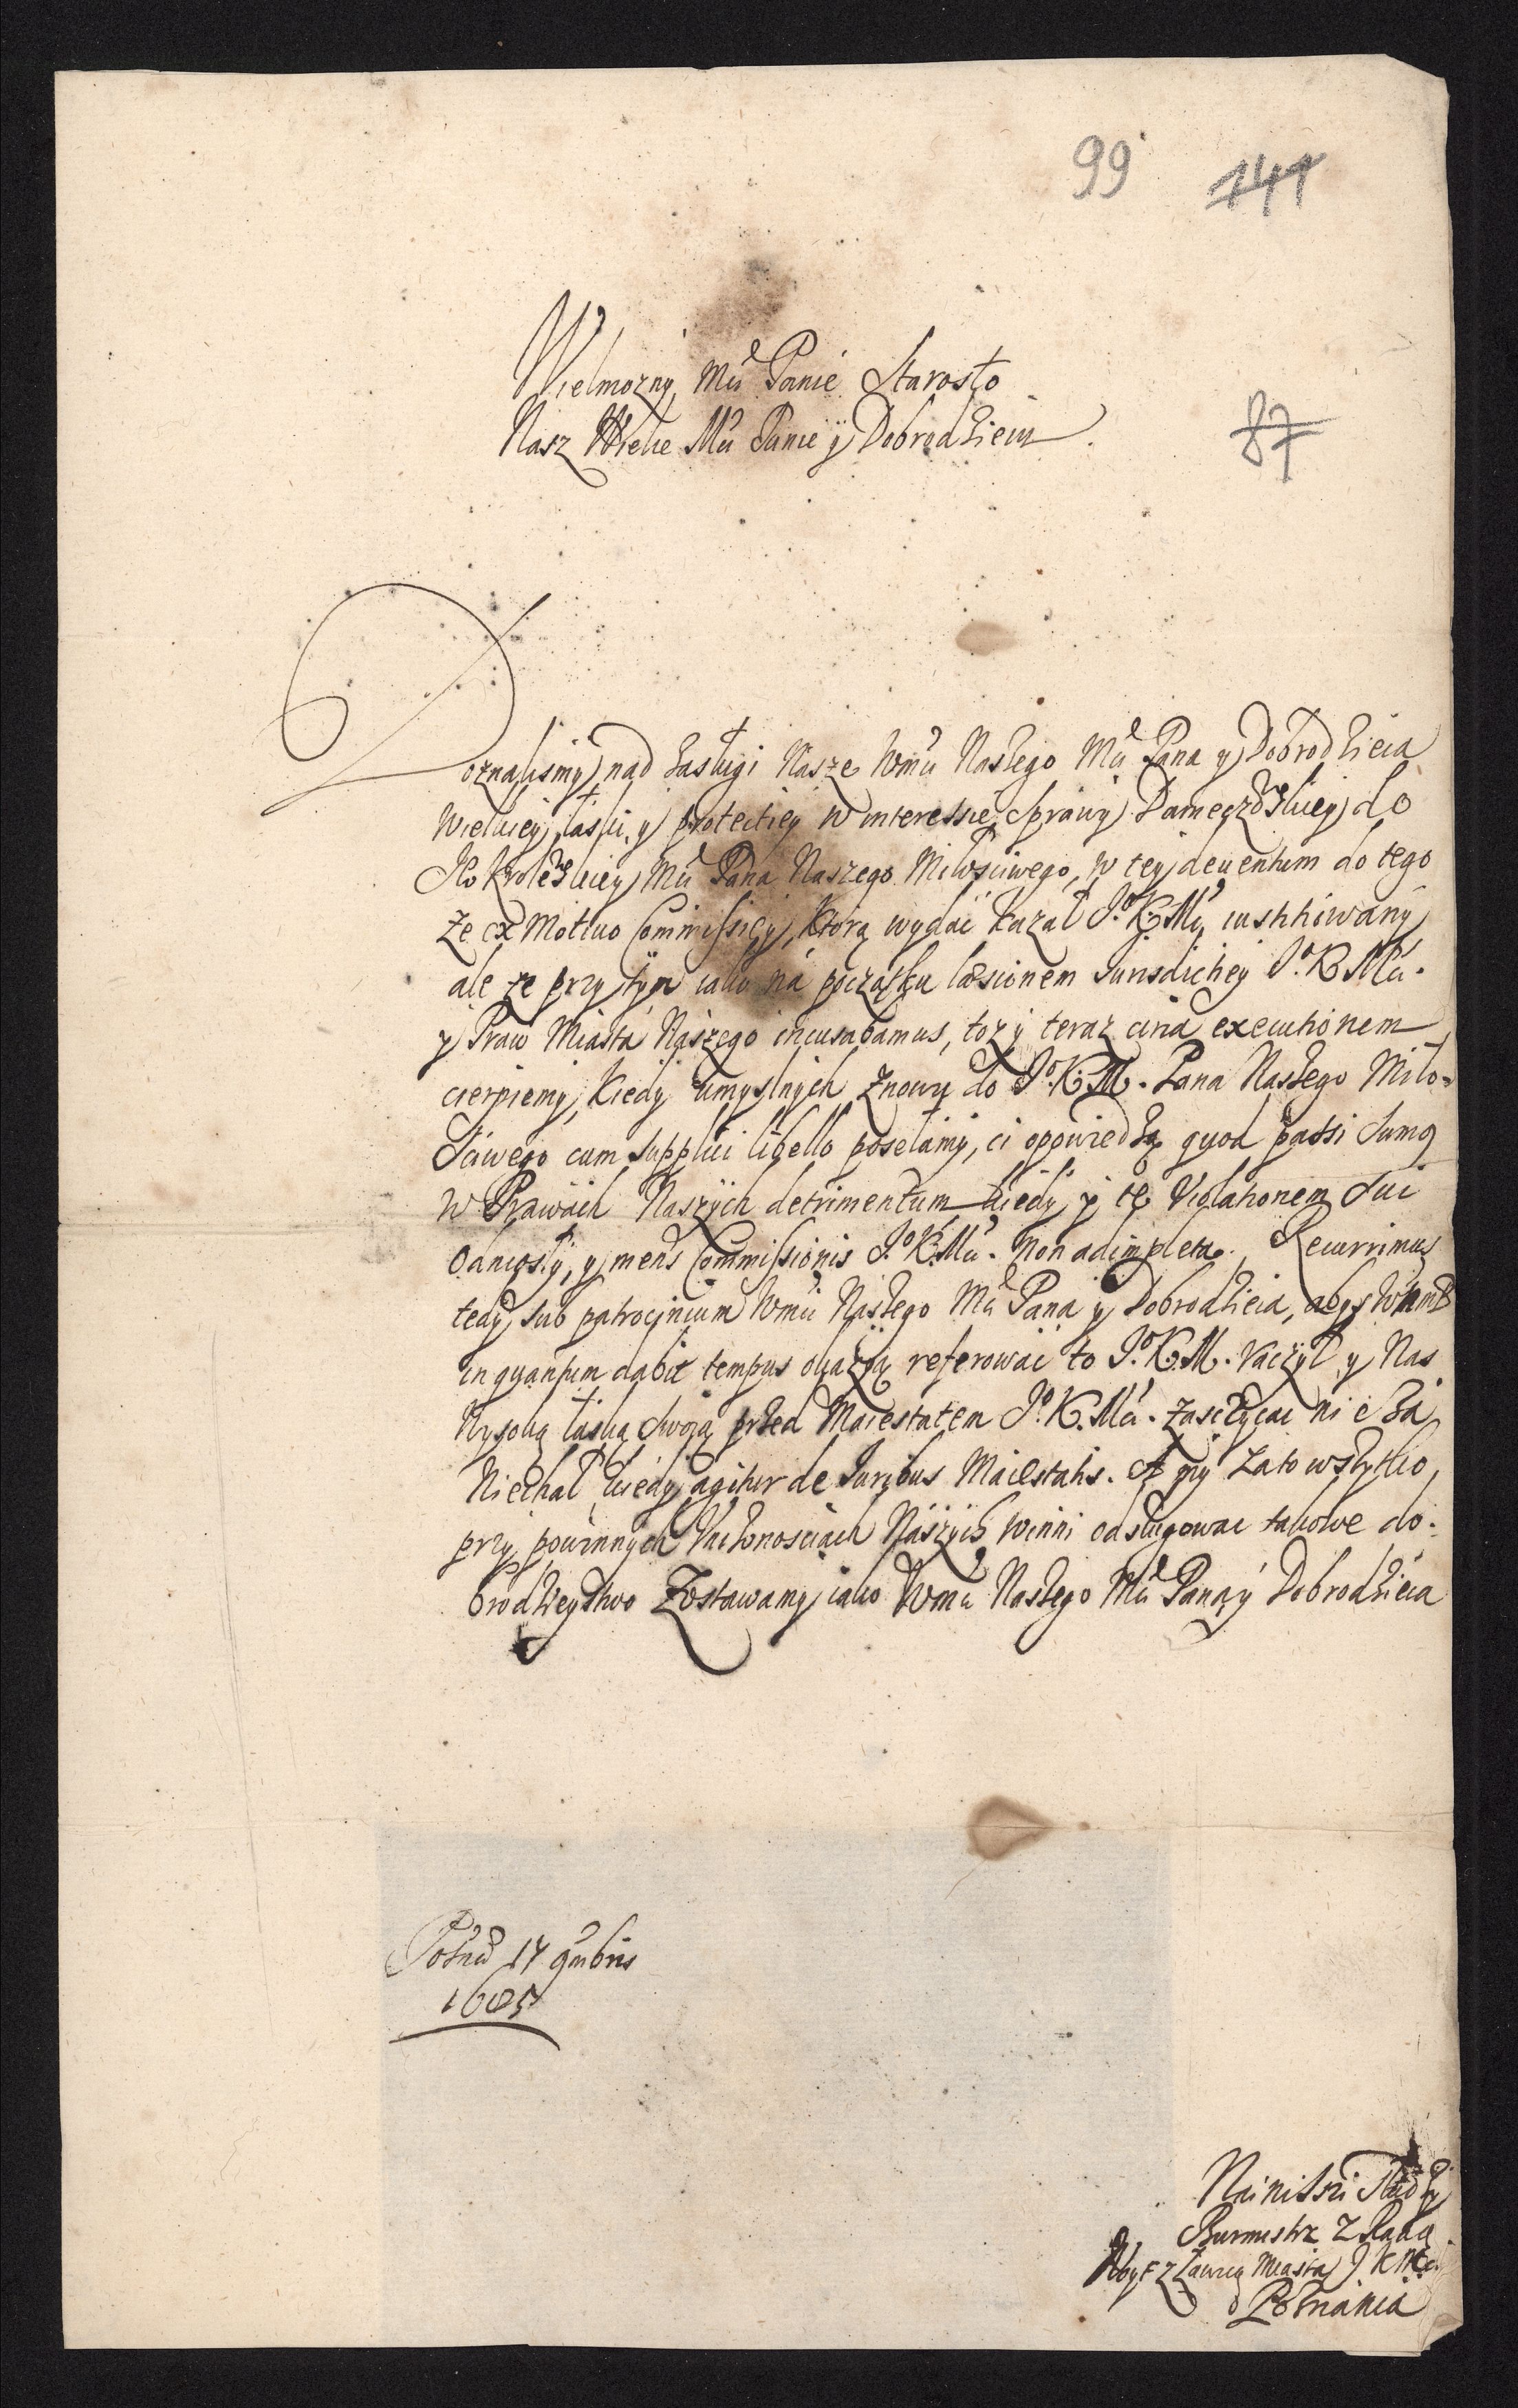 99 141
Wielmozny Mci Panie Starosto
Nasz Wielce Mci Panie y Dobrodzieiu.
87
Doznalismy nad zasługi Nasze Wmci Naszego Mci Pana y Dobrodzieia
wielkiey łaski, y protectiey w interessie sprawy do
Je Krolewskiey Mci Pana Naszego Miłosciwego, w tey deuentum do tego
Ze ex Motiuo Commissiey, ktorą wydac kazał J.o K. Mć,
ale ze przy tym iako na początku læsionem Jurisdictiey J.o K Mci.
y Praw Miasta Naszego incusabamus, toz y teraz circa executionem
cierpiemy, kiedy umyslnych znowu do J.o K. M. Pana Naszego Miło-
sciwego cum supplici libello posełamy, ci opowiedzą quod passi sumq
w Prawach Naszych detrimentum kiedy y tę Violationem sui
odniosły, y mens Commissionis J.o K. Mci. non adimpleta. Recurrimus
tedy sub patrocinium Wmci Naszego Mci Pana y Dobrodzieia, abys
in quantum dabit tempus okazyą referowac to J.o K. M. raczył y Nas
Wysoką łaską swoią przed Maiestatem J.o K. Mci. zasczycac nie za
Niechał, kiedy agitur de Juribus Maiestatis. A my zato wszytko,
przy powinnych Vnizonosciach Naszych winni odsługowac takowe do-
brodzieystwo Zostawamy iako Wmci Naszego Mci Pana y Dobrodzieia
Pozn 17 9mbris
1685
Nainiszi Słudzy
Burmistrz z Radą
Woyt z Ławicą Miasta J K Mci
Poznania